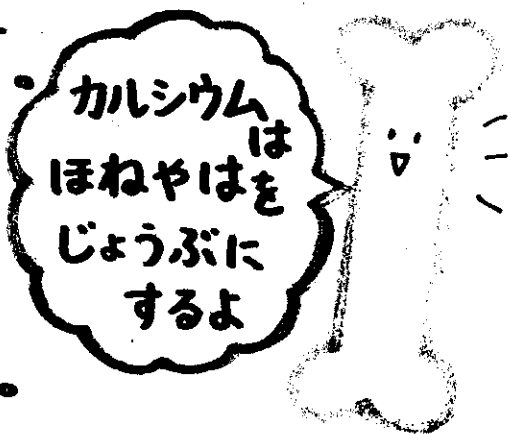 カルシウムは
ほねやはを
じょうぶに
するよ